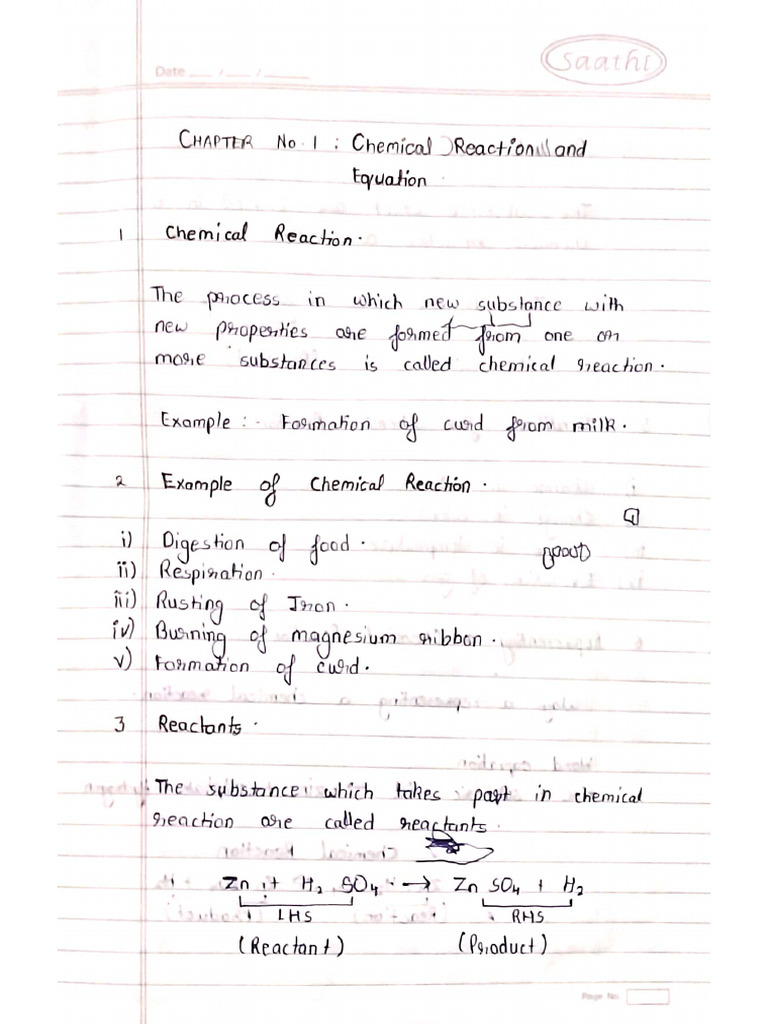 Date __/__/____
Saathi
CHAPTER No. 1 : Chemical Reaction and
Equation.
1 Chemical Reaction.
The process in which new substance with
new properties are formed from one or
more substances is called chemical reaction.
Example :- Formation of curd from milk.
2 Example of Chemical Reaction.
i) Digestion of food.
ii) Respiration.
iii) Rusting of Iron.
iv) Burning of magnesium ribbon.
v) Formation of curd.
3 Reactants.
The substance which takes part in chemical
reaction are called reactants.
Zn + H₂ SO₄ → Zn SO₄ + H₂
LHS RHS
(Reactant) (Product)
Page No.